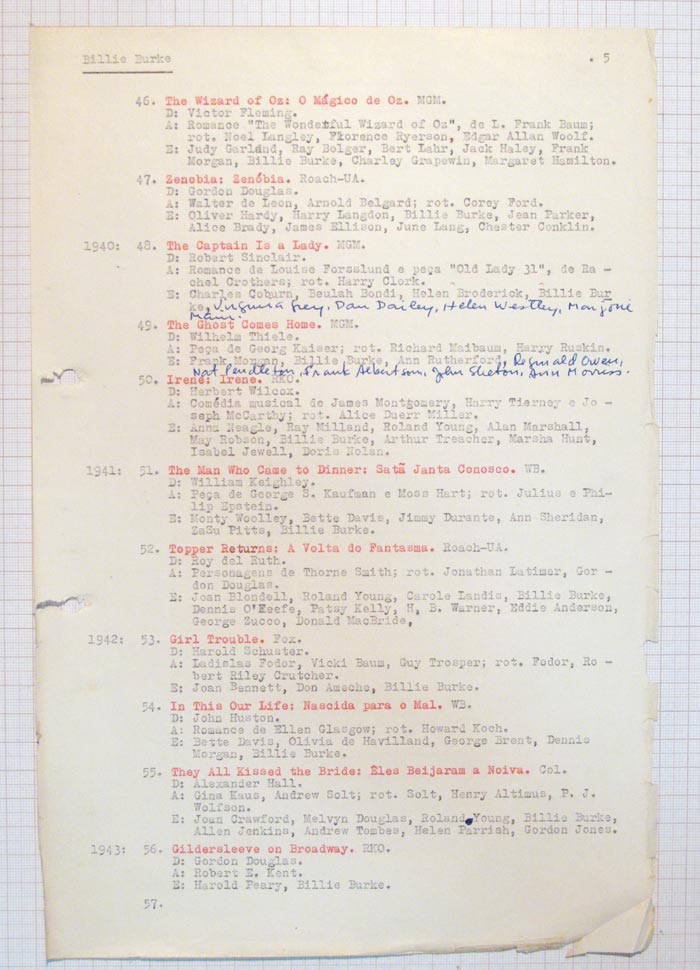 Billie Burke . 5
46. The Wizard of Oz: O Mágico de Oz. MGM.
D: Victor Fleming.
A: Romance "The Wonderful Wizard of Oz", de L. Frank Baum;
rot. Noel Langley, Florence Ryerson, Edgar Allan Woolf.
E: Judy Garland, Ray Bolger, Bert Lahr, Jack Haley, Frank
Morgan, Billie Burke, Charley Grapewin, Margaret Hamilton.
47. Zenobia: Zenóbia. Roach-UA.
D: Gordon Douglas.
A: Walter de Leon, Arnold Belgard; rot. Corey Ford.
E: Oliver Hardy, Harry Langdon, Billie Burke, Jean Parker,
Alice Brady, James Ellison, June Lang, Chester Conklin.
1940: 48. The Captain Is a Lady. MGM.
D: Robert Sinclair.
A: Romance de Louise Forsslund e peça "Old Lady 31", de Ra -
chel Crothers; rot. Harry Clork.
E: Charles Coburn, Beulah Bondi, Helen Broderick, Billie Bur
ke, Virginia Grey, Dan Dailey, Helen Westley, Marjorie
Main.
49. The Ghost Comes Home. MGM.
D: Wilhelm Thiele.
A: Peça de Georg Kaiser; rot. Richard Maibaum, Harry Ruskin.
E: Frank Morgan, Billie Burke, Ann Rutherford, Reginald Owen,
Nat Pendleton, Frank Albertson, John Shelton, Ann Morriss.
50. Irene: Irene. RKO.
D: Herbert Wilcox.
A: Comédia musical de James Montgomery, Harry Tierney e Jo -
seph McCarthy; rot. Alice Duerr Miller.
E: Anna Neagle, Ray Milland, Roland Young, Alan Marshall,
May Robson, Billie Burke, Arthur Treacher, Marsha Hunt,
Isabel Jewell, Doris Nolan.
1941: 51. The Man Who Came to Dinner: Satã Janta Conosco. WB.
D: William Keighley.
A: Peça de George S. Kaufman e Moss Hart; rot. Julius e Phi-
lip Epstein.
E: Monty Woolley, Bette Davis, Jimmy Durante, Ann Sheridan,
ZaSu Pitts, Billie Burke.
52. Topper Returns: A Volta do Fantasma. Roach-UA.
D: Roy del Ruth.
A: Personagens de Thorne Smith; rot. Jonathan Latimer, Gor -
don Douglas.
E: Joan Blondell, Roland Young, Carole Landis, Billie Burke,
Dennis O'Keefe, Patsy Kelly, H, B. Warner, Eddie Anderson,
George Zucco, Donald MacBride,
1942: 53. Girl Trouble. Fox.
D: Harold Schuster.
A: Ladislas Fodor, Vicki Baum, Guy Trosper; rot. Fodor, Ro -
bert Riley Crutcher.
E: Joan Bennett, Don Ameche, Billie Burke.
54. In This Our Life: Nascida para o Mal. WB.
D: John Huston.
A: Romance de Ellen Glasgow; rot. Howard Koch.
E: Bette Davis, Olivia de Havilland, George Brent, Dennis
Morgan, Billie Burke.
55. They All Kissed the Bride: Êles Beijaram a Noiva. Col.
D: Alexander Hall.
A: Gina Kaus, Andrew Solt; rot. Solt, Henry Altimus, P. J.
Wolfson.
E: Joan Crawford, Melvyn Douglas, Roland Young, Billie Burke,
Allen Jenkins, Andrew Tombes, Helen Parrish, Gordon Jones.
1943: 56. Gildersleeve on Broadway. RKO.
D: Gordon Douglas.
A: Robert E. Kent.
E: Harold Peary, Billie Burke.
57.